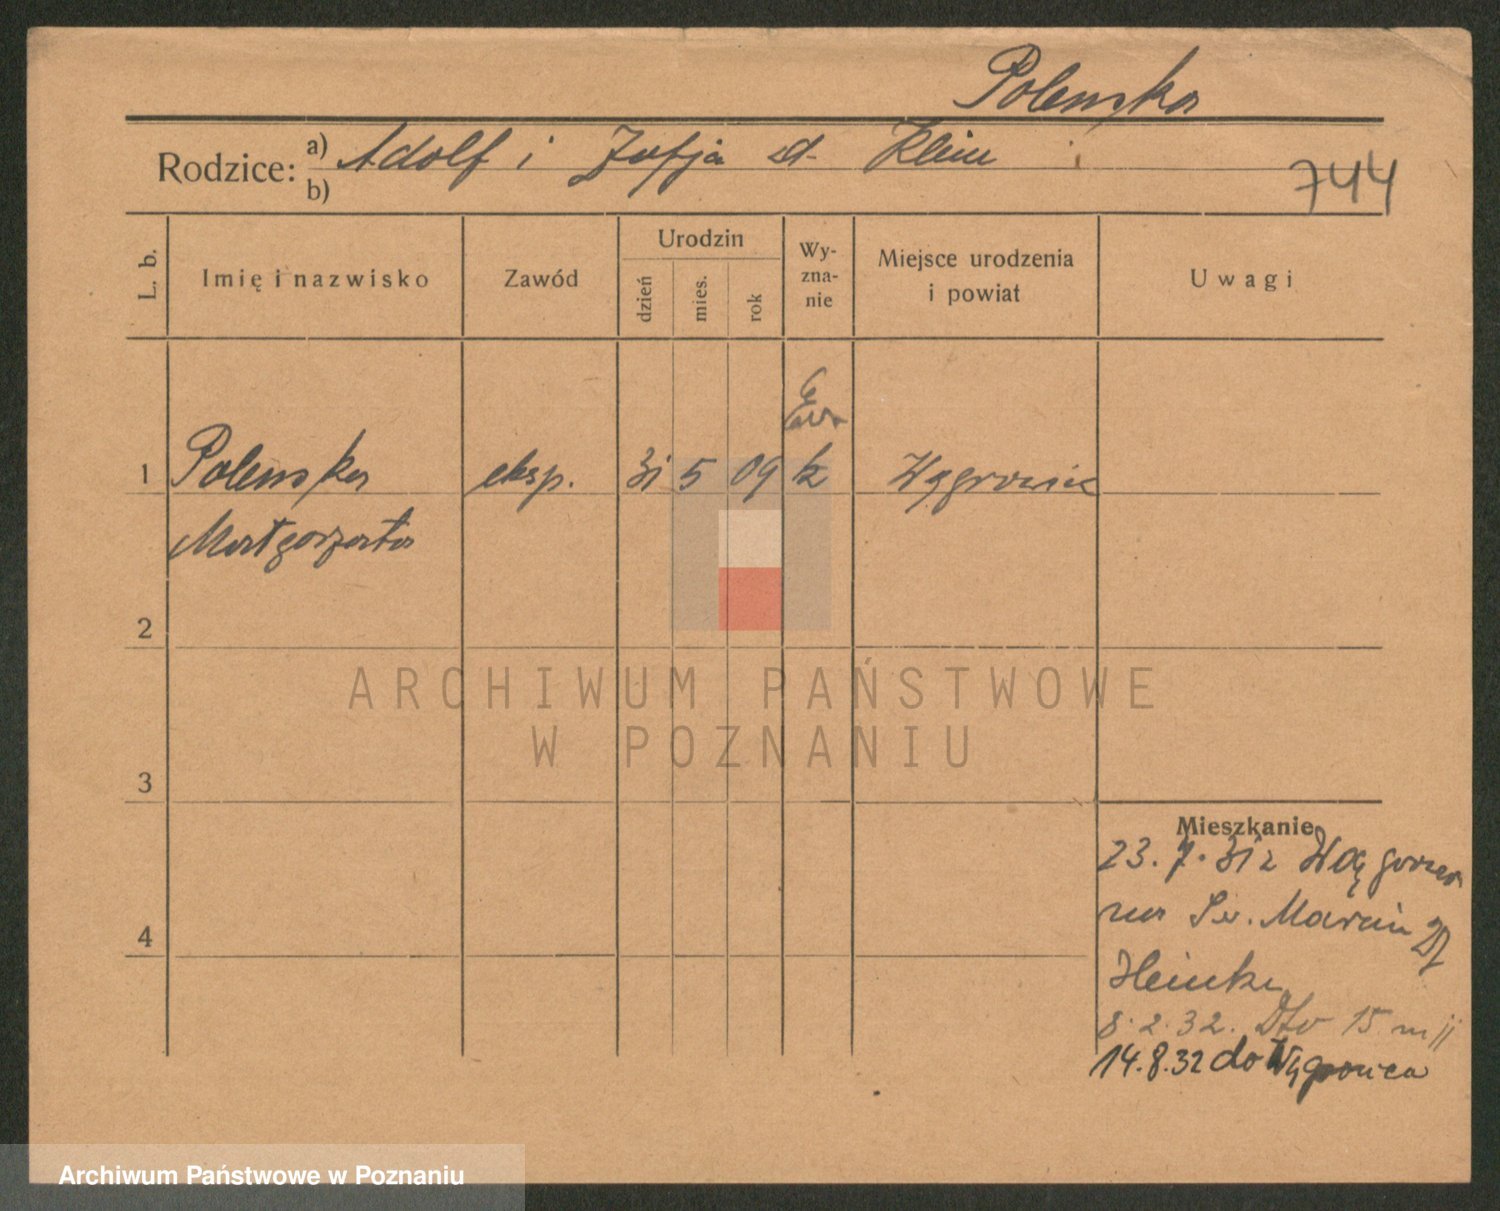 Polenska
Rodzice: a) Adolf i Zofja d. Klein
b)
744
L. b.
Imię i nazwisko
Zawód
Urodzin
dzień
mies.
rok
Wy-
zna-
nie
Miejsce urodzenia
i powiat
Uwagi
Ew.
1 Polenska eksp. 31 5 09 k Wągrowiec
Małgorzata
2
3
4
Mieszkanie
23. 7. 31 z Wągrowca
na Św. Marcin 27
Heinke
8. 2. 32. Dto 15 m
14.8.32 do Wągrowca
ARCHIWUM PAŃSTWOWE
W POZNANIU
Archiwum Państwowe w Poznaniu